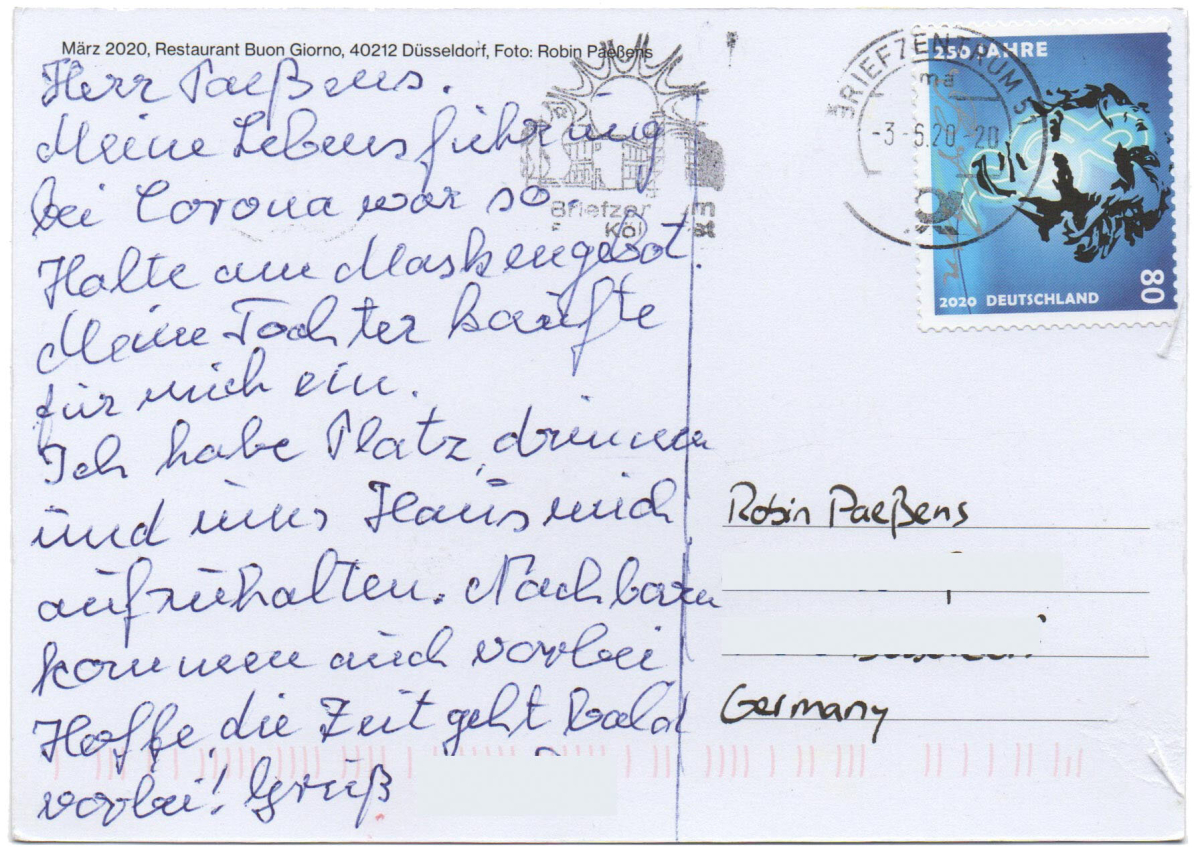 März 2020, Restaurant Buon Giorno, 40212 Düsseldorf, Foto: Robin Paeßens
Herr Paeßens.
Meine Lebensführung
bei Corona war so.
Halte am Maskengebot.
Meine Tochter kaufte
für mich ein.
Ich habe Platz, drinnen
und ums Haus mich
aufzuhalten. Nachbarn
kommen auch vorbei
Hoffe, die Zeit geht bald
vorbei! Gruß
Briefzen m
Köl st
BRIEFZENTRUM 5
ma
-3.-6.20-20
250 JAHRE
2020 DEUTSCHLAND
80
Robin Paeßens
Germany